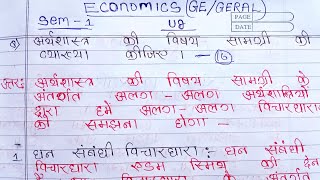 ECONOMICS (GE/GERAL)
Sem-1 UG
PAGE
DATE
Q) अर्थशास्त्र की विषय सामग्री की
व्याख्या कीजिए। -
उत्तर: अर्थशास्त्र की विषय सामग्री के
अंतर्गत अलग-अलग अर्थशास्त्रियों
द्वारा हमें अलग-अलग विचारधाराओं
को समझना होगा -
1 धन संबंधी विचारधारा: धन संबंधी
विचारधारा एडम स्मिथ की देन
के अंतर्गत